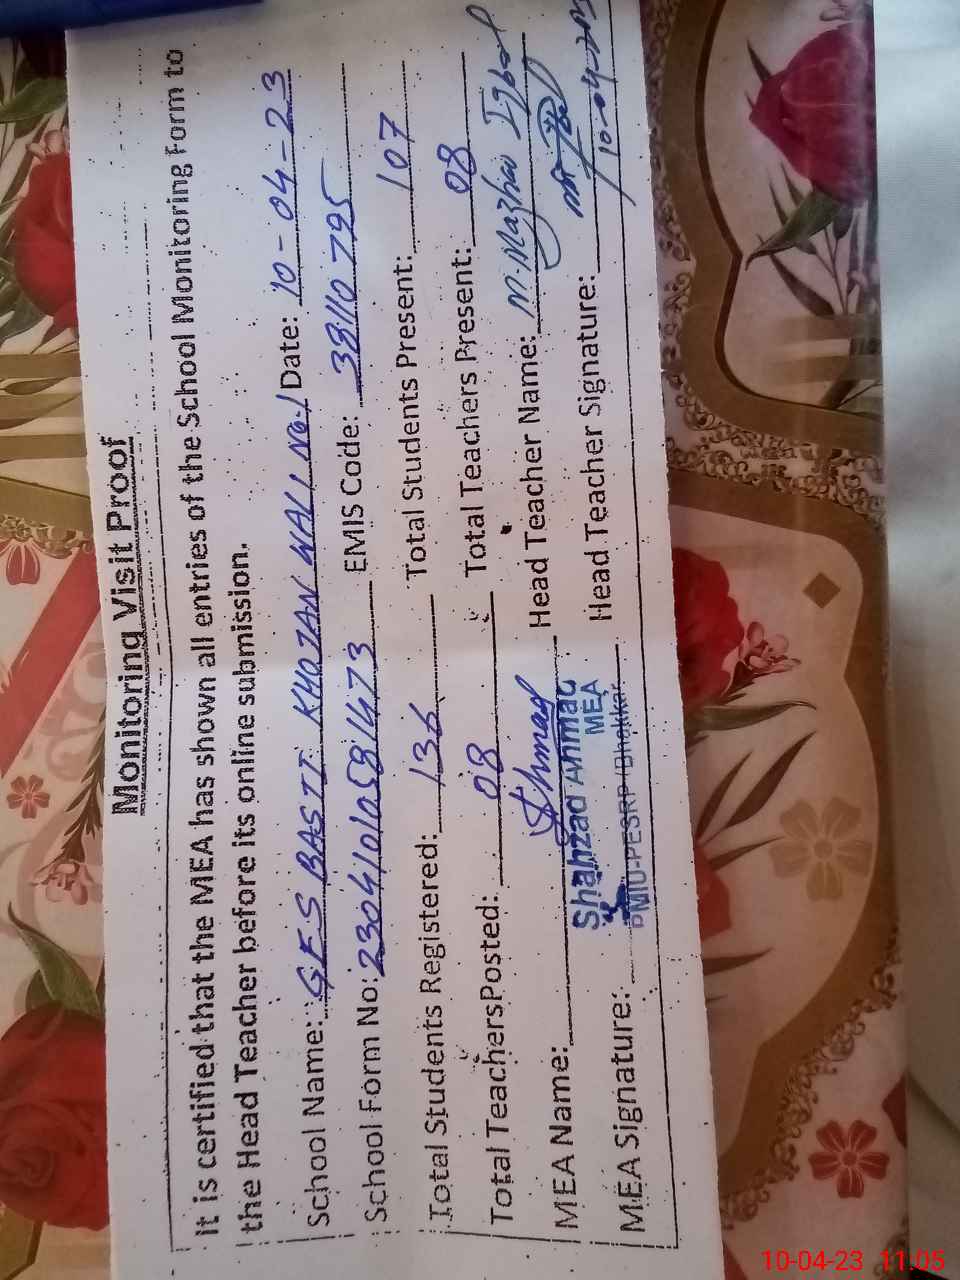 Monitoring Visit Proof
It is certified that the MEA has shown all entries of the School Monitoring Form to
the Head Teacher before its online submission.
School Name: GES BASTI KHOJAN WALI No.1 Date: 10-04-23
School Form No: 23041010581473 EMIS Code: 38110795
Total Students Registered: 136 Total Students Present: 107
Total TeachersPosted: 08 Total Teachers Present: 08
MEA Name: Head Teacher Name: M. Mazhar Iqbal
Shahzad Ahmad
MEA
PMIU-PESRP (Bhakkar
MEA Signature: Head Teacher Signature:
10-04-23 11:05